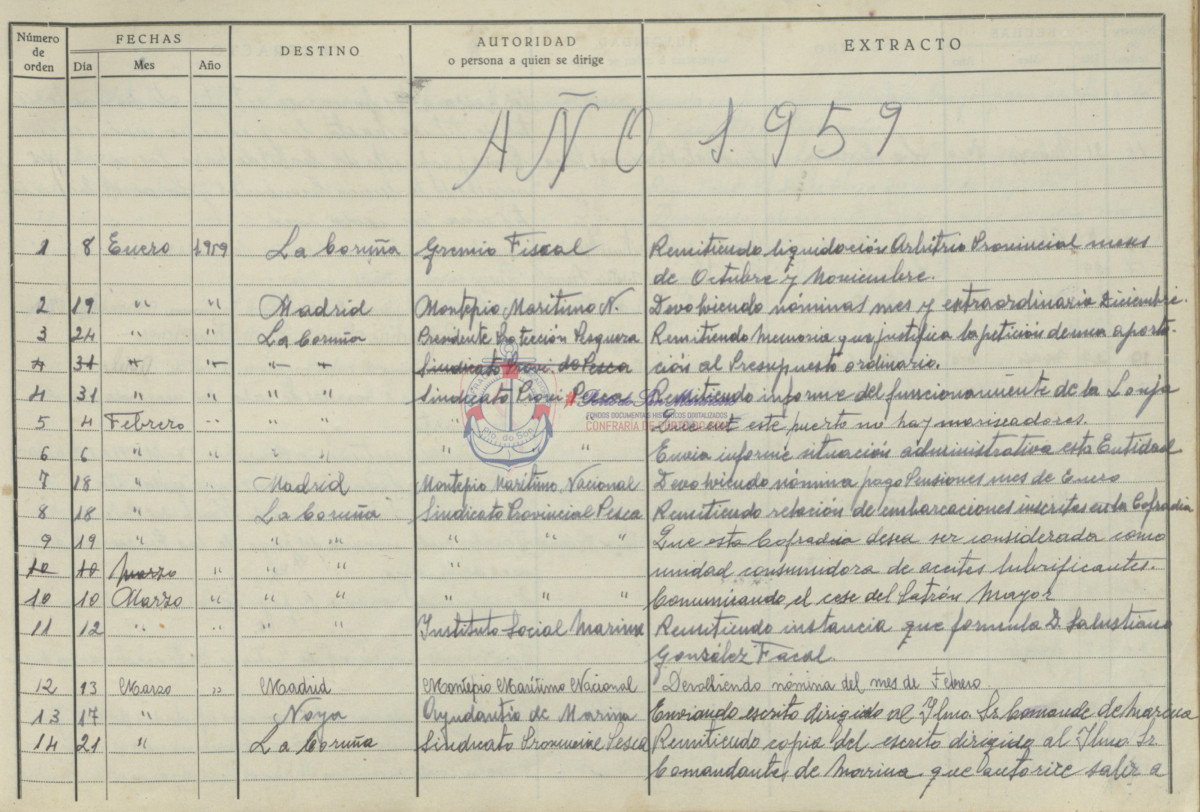 Número de orden FECHAS DESTINO AUTORIDAD o persona a quien se dirige EXTRACTO
Día Mes Año
AÑO 1.959
1 8 Enero 1959 La Coruña Gremio Fiscal Remitiendo liquidación Arbitrio Provincial meses
de Octubre y Noviembre.
2 19 " " Madrid Montepio Marítimo N. Devolviendo nóminas mes y extraordinaria Diciembre.
3 24 " " La Coruña Presidente Protección Pesquera Remitiendo Memoria que justifica la petición de una aporta-
4 31 " " " " Sindicato Provi. de Pesca ción al Presupuesto ordinario.
4 31 " " " " Sindicato Provi Pesca Remitiendo informe del funcionamiento de la Lonja
5 4 Febrero " " " " Que en este puerto no hay mariscadores.
6 6 " " " " " " Envia informe situación administrativa esta Entidad
7 18 " " Madrid Montepio Marítimo Nacional Devolviendo nómina pago Pensiones mes de Enero
8 18 " La Coruña Sindicato Provincial Pesca Remitiendo relación de embarcaciones inscritas en la Cofradia
9 19 " " " " " " " Que esta Cofradia desea ser considerada como
10 10 Marzo " " " " unidad consumidora de aceites lubrificantes.
10 10 Marzo " " " " " " Comunicando el cese del Patrón Mayor
11 12 " " " " Instituto Social Marina Remitiendo instancia que formula D. Salustiano
González Facal.
12 13 Marzo " Madrid Montepio Marítimo Nacional Devolbiendo nómina del mes de Febrero
13 17 " Noya Ayudantia de Marina Enviando escrito dirigido al Ilmo. Sr. Comande de Marina
14 21 " La Coruña Sindicato Provincial Pesca Remitiendo copia del escrito dirigido al Ilmo. Sr
Comandantes de Marina que autorice salir a
Pto. do Son
FONDOS DOCUMENTAIS HISTÓRICOS DIXITALIZADOS
CONFRARÍA DE PORTO DO SON